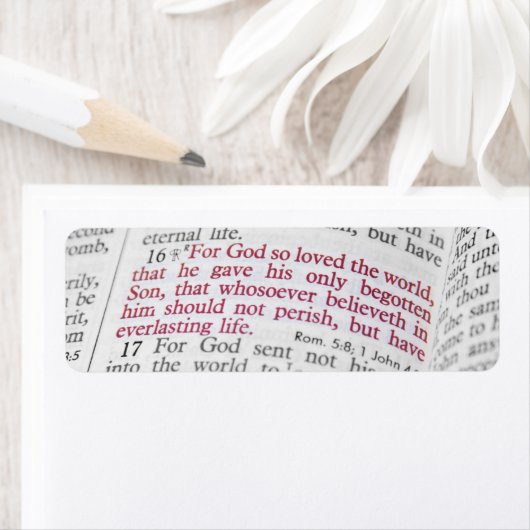 second
omb,
rily,
n be
rit,
om
3:5
eternal life.
16 RFor God so loved the world,
that he gave his only begotten
Son, that whosoever believeth in
him should not perish, but have
everlasting life. Rom. 5:8; 1 John
17 For God sent not his
into the world to
eth in
but have
And
said unto
with the
thou
the sam
come to h
john ans